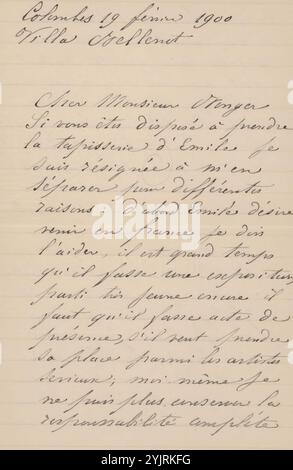 Colombes 19 février 1900
Villa Bellenot
Cher Monsieur Wenger
Si vous êtes disposé à prendre
la tapisserie d'Emile je
suis résignée à m'en
séparer pour différentes
raisons d'abord Emile désire
venir en france je dois
l'aider, il est grand temps
qu'il fasse une exposition
parti très jeune encore il
faut qu'il fasse acte de
présence, s'il veut prendre
sa place parmi les artistes
serieux; moi même je
ne puis plus conserver la
responsabilité complète
alamy
Image ID: 2YJRKFG
www.alamy.com